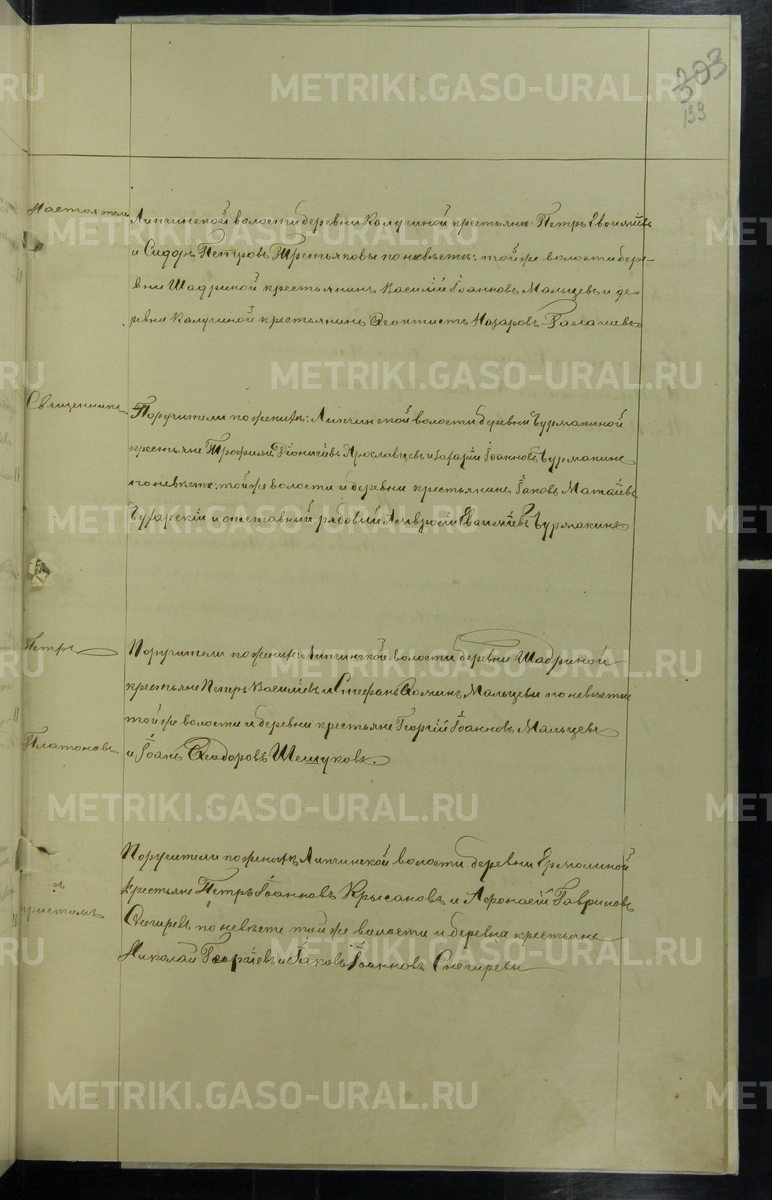 303
193
Настоятель
Липчинской волости деревни Калугиной крестьяне: Петръ
и Сидоръ Петровъ Третьяковы по невѣстѣ: той же волости дере-
вни Шадриной крестьянинъ Василій Іоанновъ Мальцевъ и де-
ревни Калугиной крестьянинъ Ѳеоктистъ Назаровъ
Священникъ
Поручители по женихѣ: Липчинской волости деревни Бурмакиной
крестьяне Трофимъ Діонисіевъ Ярославцевъ и Захарій Іоанновъ Бурмакинъ
по невѣстѣ: той же волости и деревни крестьянинъ Іаковъ
и отставный рядовый Амвросій Бурмакинъ
Петръ
Поручители по женихѣ: Липчинской волости деревни Шадриной
крестьяне Петръ Василіевъ и Стефанъ Ѳоминъ Мальцевы по невѣстѣ
той же волости и деревни крестьяне Георгій Іоанновъ Мальцевъ
Платоновъ
и Іоанъ Ѳеодоровъ Шешуковъ.
Поручители по женихѣ Липчинской волости деревни Ермолиной
крестьяне Петръ Іоанновъ Крысановъ и Афонасій Гавриловъ
Снегиревъ по невѣсте той же волости и деревни крестьяне
Николай Георгіевъ и Іаковъ Іоанновъ Снегиревы
METRIKI.GASO-URAL.RU